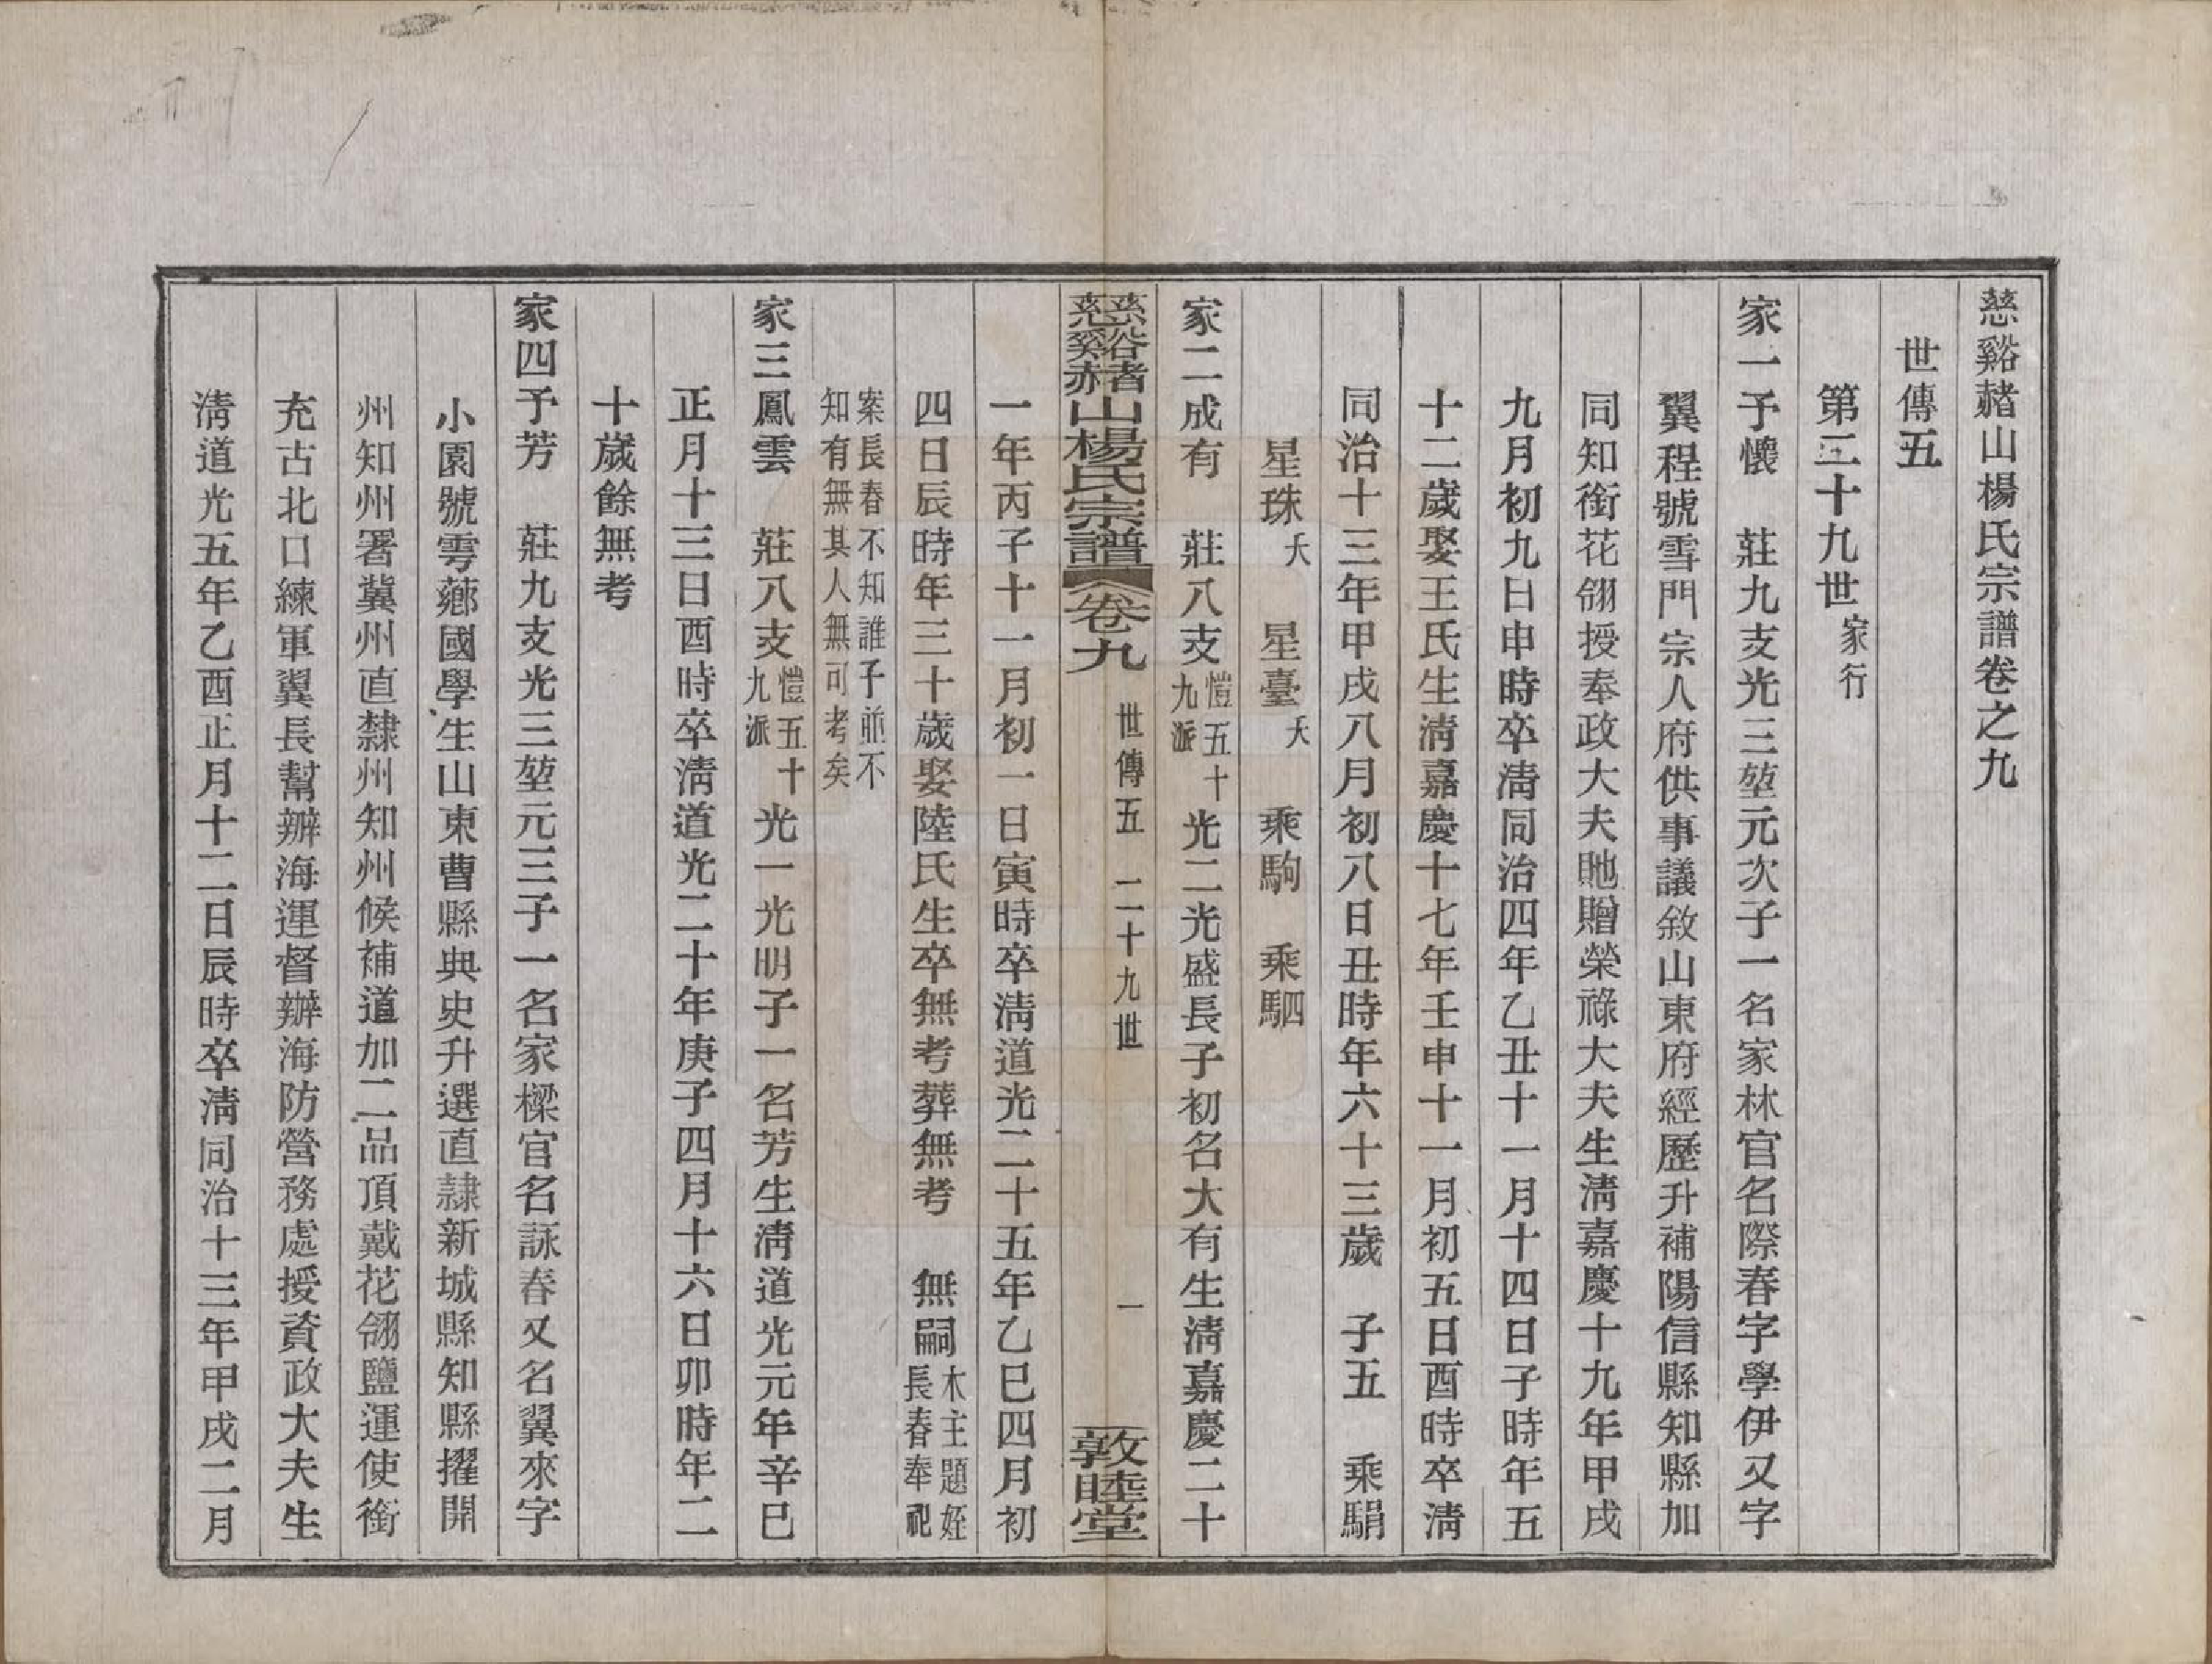 慈谿赭山楊氏宗譜卷之九
世傳五
第二十九世家行
家一予懷　莊九支光三堃元次子一名家林官名際春字學伊又字
翼程號雪門宗人府供事議敘山東府經歷升補陽信縣知縣加
同知銜花翎授奉政大夫貤贈榮祿大夫生淸嘉慶十九年甲戌
九月初九日申時卒淸同治四年乙丑十一月十四日子時年五
十二歲娶王氏生淸嘉慶十七年壬申十一月初五日酉時卒淸
同治十三年甲戌八月初八日丑時年六十三歲　子五　乘騆
星珠夭　星臺夭　乘駒　乘駟
家二成有　莊八支愷五十九派光二光盛長子初名大有生淸嘉慶二十
慈谿赭山楊氏宗譜　卷九　世傳五　二十九世　一　敦睦堂
一年丙子十一月初一日寅時卒淸道光二十五年乙巳四月初
四日辰時年三十歲娶陸氏生卒無考葬無考　無嗣木主題姪長春奉祀
案長春不知誰子並不知有無其人無可考矣
家三鳳雲　莊八支愷五十九派光一光明子一名芳生淸道光元年辛巳
正月十三日酉時卒淸道光二十年庚子四月十六日卯時年二
十歲餘無考
家四予芳　莊九支光三堃元三子一名家樑官名詠春又名翼來字
小園號雩薌國學生山東曹縣典史升選直隸新城縣知縣擢開
州知州署冀州直隸州知州候補道加二品頂戴花翎鹽運使銜
充古北口練軍翼長幫辦海運督辦海防營務處授資政大夫生
淸道光五年乙酉正月十二日辰時卒淸同治十三年甲戌二月